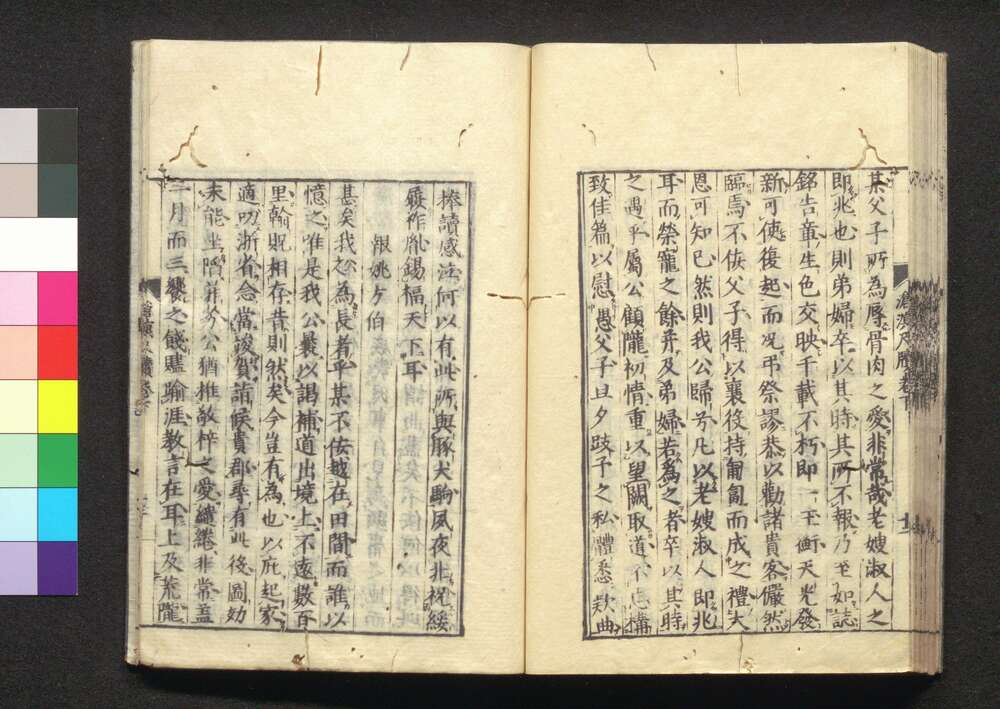 某父子所為辱骨肉之愛非常哉老嫂淑人之
即兆也則弟婦卒以其時其所不報乃至如誌
銘告章生色交映千載不朽即一至衝天光發
新可使復起而况弔祭謬恭以勸諸貴客儼然
臨焉不佞父子得以襄役持匍匐而成之禮大
恩可知已然則我公歸兮凡以老嫂淑人即兆
耳而榮寵之餘并及弟婦若為之者卒以其時
之遇乎屬公顧隴初情重以望關取道不忘搆
致佳篇以慰愚父子旦夕跂予之私體悉欵曲
滄溟尺牘卷下
捧讀感泣何以有此所與豚犬駒夙夜非祝綏
履祚胤錫福天下耳
報姚少伯
甚矣我之為長者乎某不佞越在田間而誰以
憶之唯是我公曩以謁補道出境上不遠數百
里翰貺相存昔則然矣今豈有為也以庇起家
適叨浙省念當浚賀請候貴郡尋有此後圖効
未能坐隋并於公猶推敬梓之愛繾綣非常盖
二月而三饗之餞驢踰涯教言在耳上及荒隴